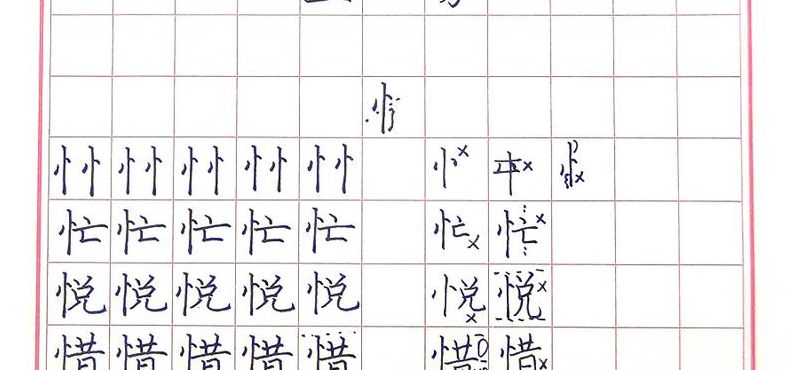 忄
忄忄 忄忄 忄忄 忄忄 忄忄 忄×  ×  忄×
忙 忙 忙 忙 忙 忙× 忙×
悦 悦 悦 悦 悦 悦× 悦×
惜 惜 惜 惜 惜 惜 惜×